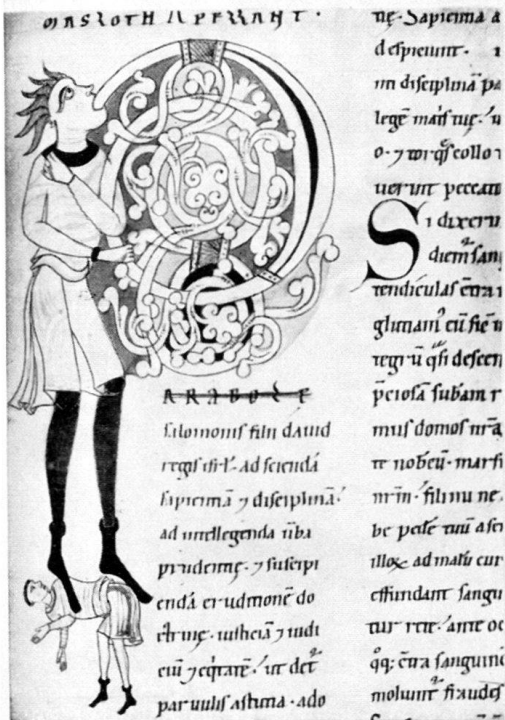 MASLOTH APPELLANT ·
PARABOLE
salomonis filii dauid
regis isrl̄. ad sciendā
sapientiā ⁊ disciplinā.
ad intellegenda ūba
prudentię. ⁊ suscipi
endā eruditionē do
ctrinę. iusticiā ⁊ iudi
ciū ⁊ eq̇tatē. ut det̄
paruulis astutia. ado
tię. Sapientiā a
despiciunt. i
mi disciplinā pa
legē matris tuę. u
o. ⁊ torq̄s collo
uerint peccato
Si dixeru
diem san
tendiculas c̄tra i
glutiam' eū
tegrū q̇si descen
p̄ciosā substan r
mus domos nr̄a
te nobcū. marsi
nr̄m. fili mi ne
be pedē tuū a sem
illoꝝ ad malū cur
effundant sangu
tur rete. ante oc
qq; c̄tra sanguinē
moliunt̄ fraudes